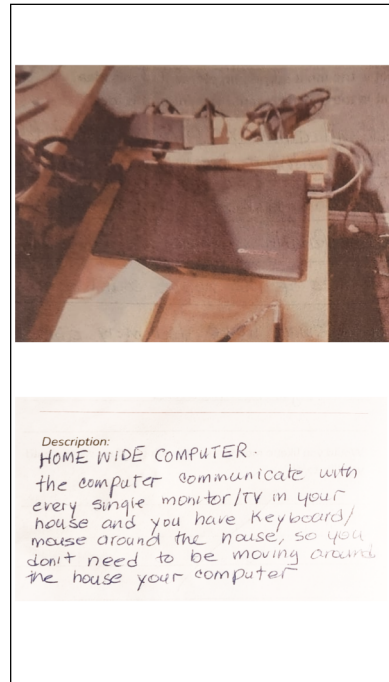 Description:
HOME WIDE COMPUTER.
the computer communicate with
every single monitor/TV in your
house and you have Keyboard/
mouse around the house, so you
don't need to be moving around
the house your computer